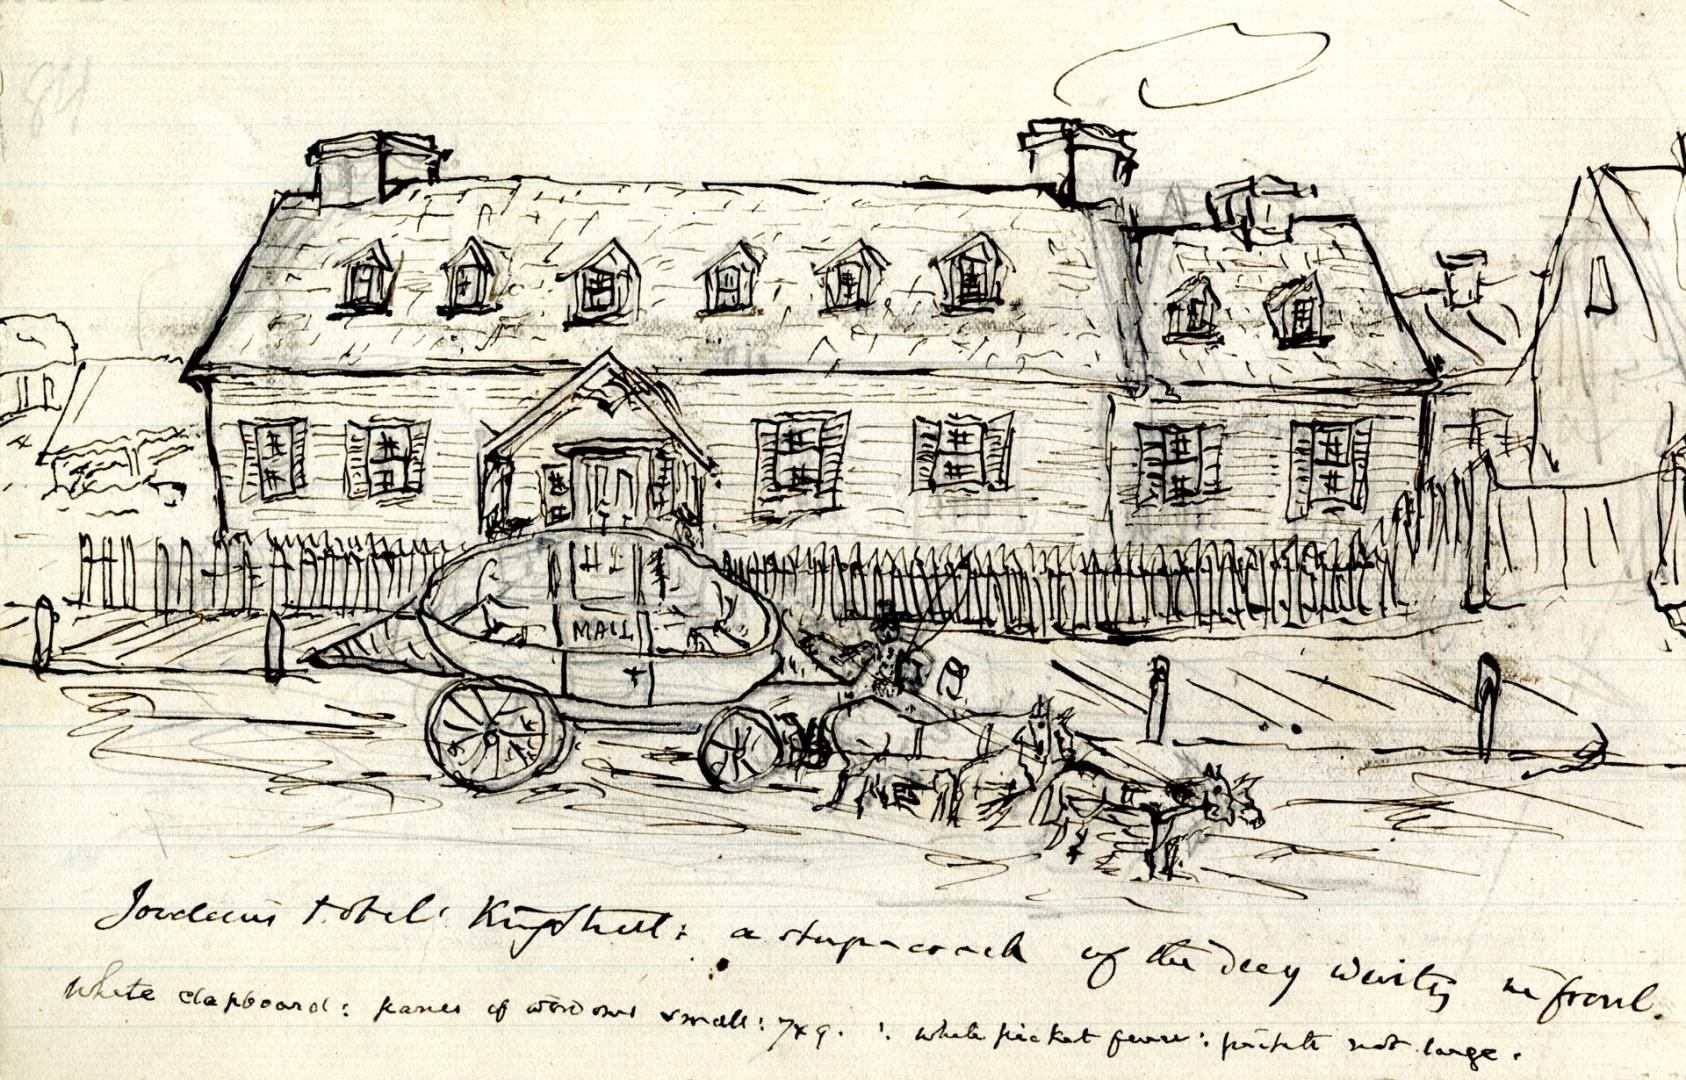 MAIL
Jordan's Hotel: King Street: a stage-coach of the day waiting in front.
White clapboard: panes of windows small: 7x9. : white picket fence: pickets not large.